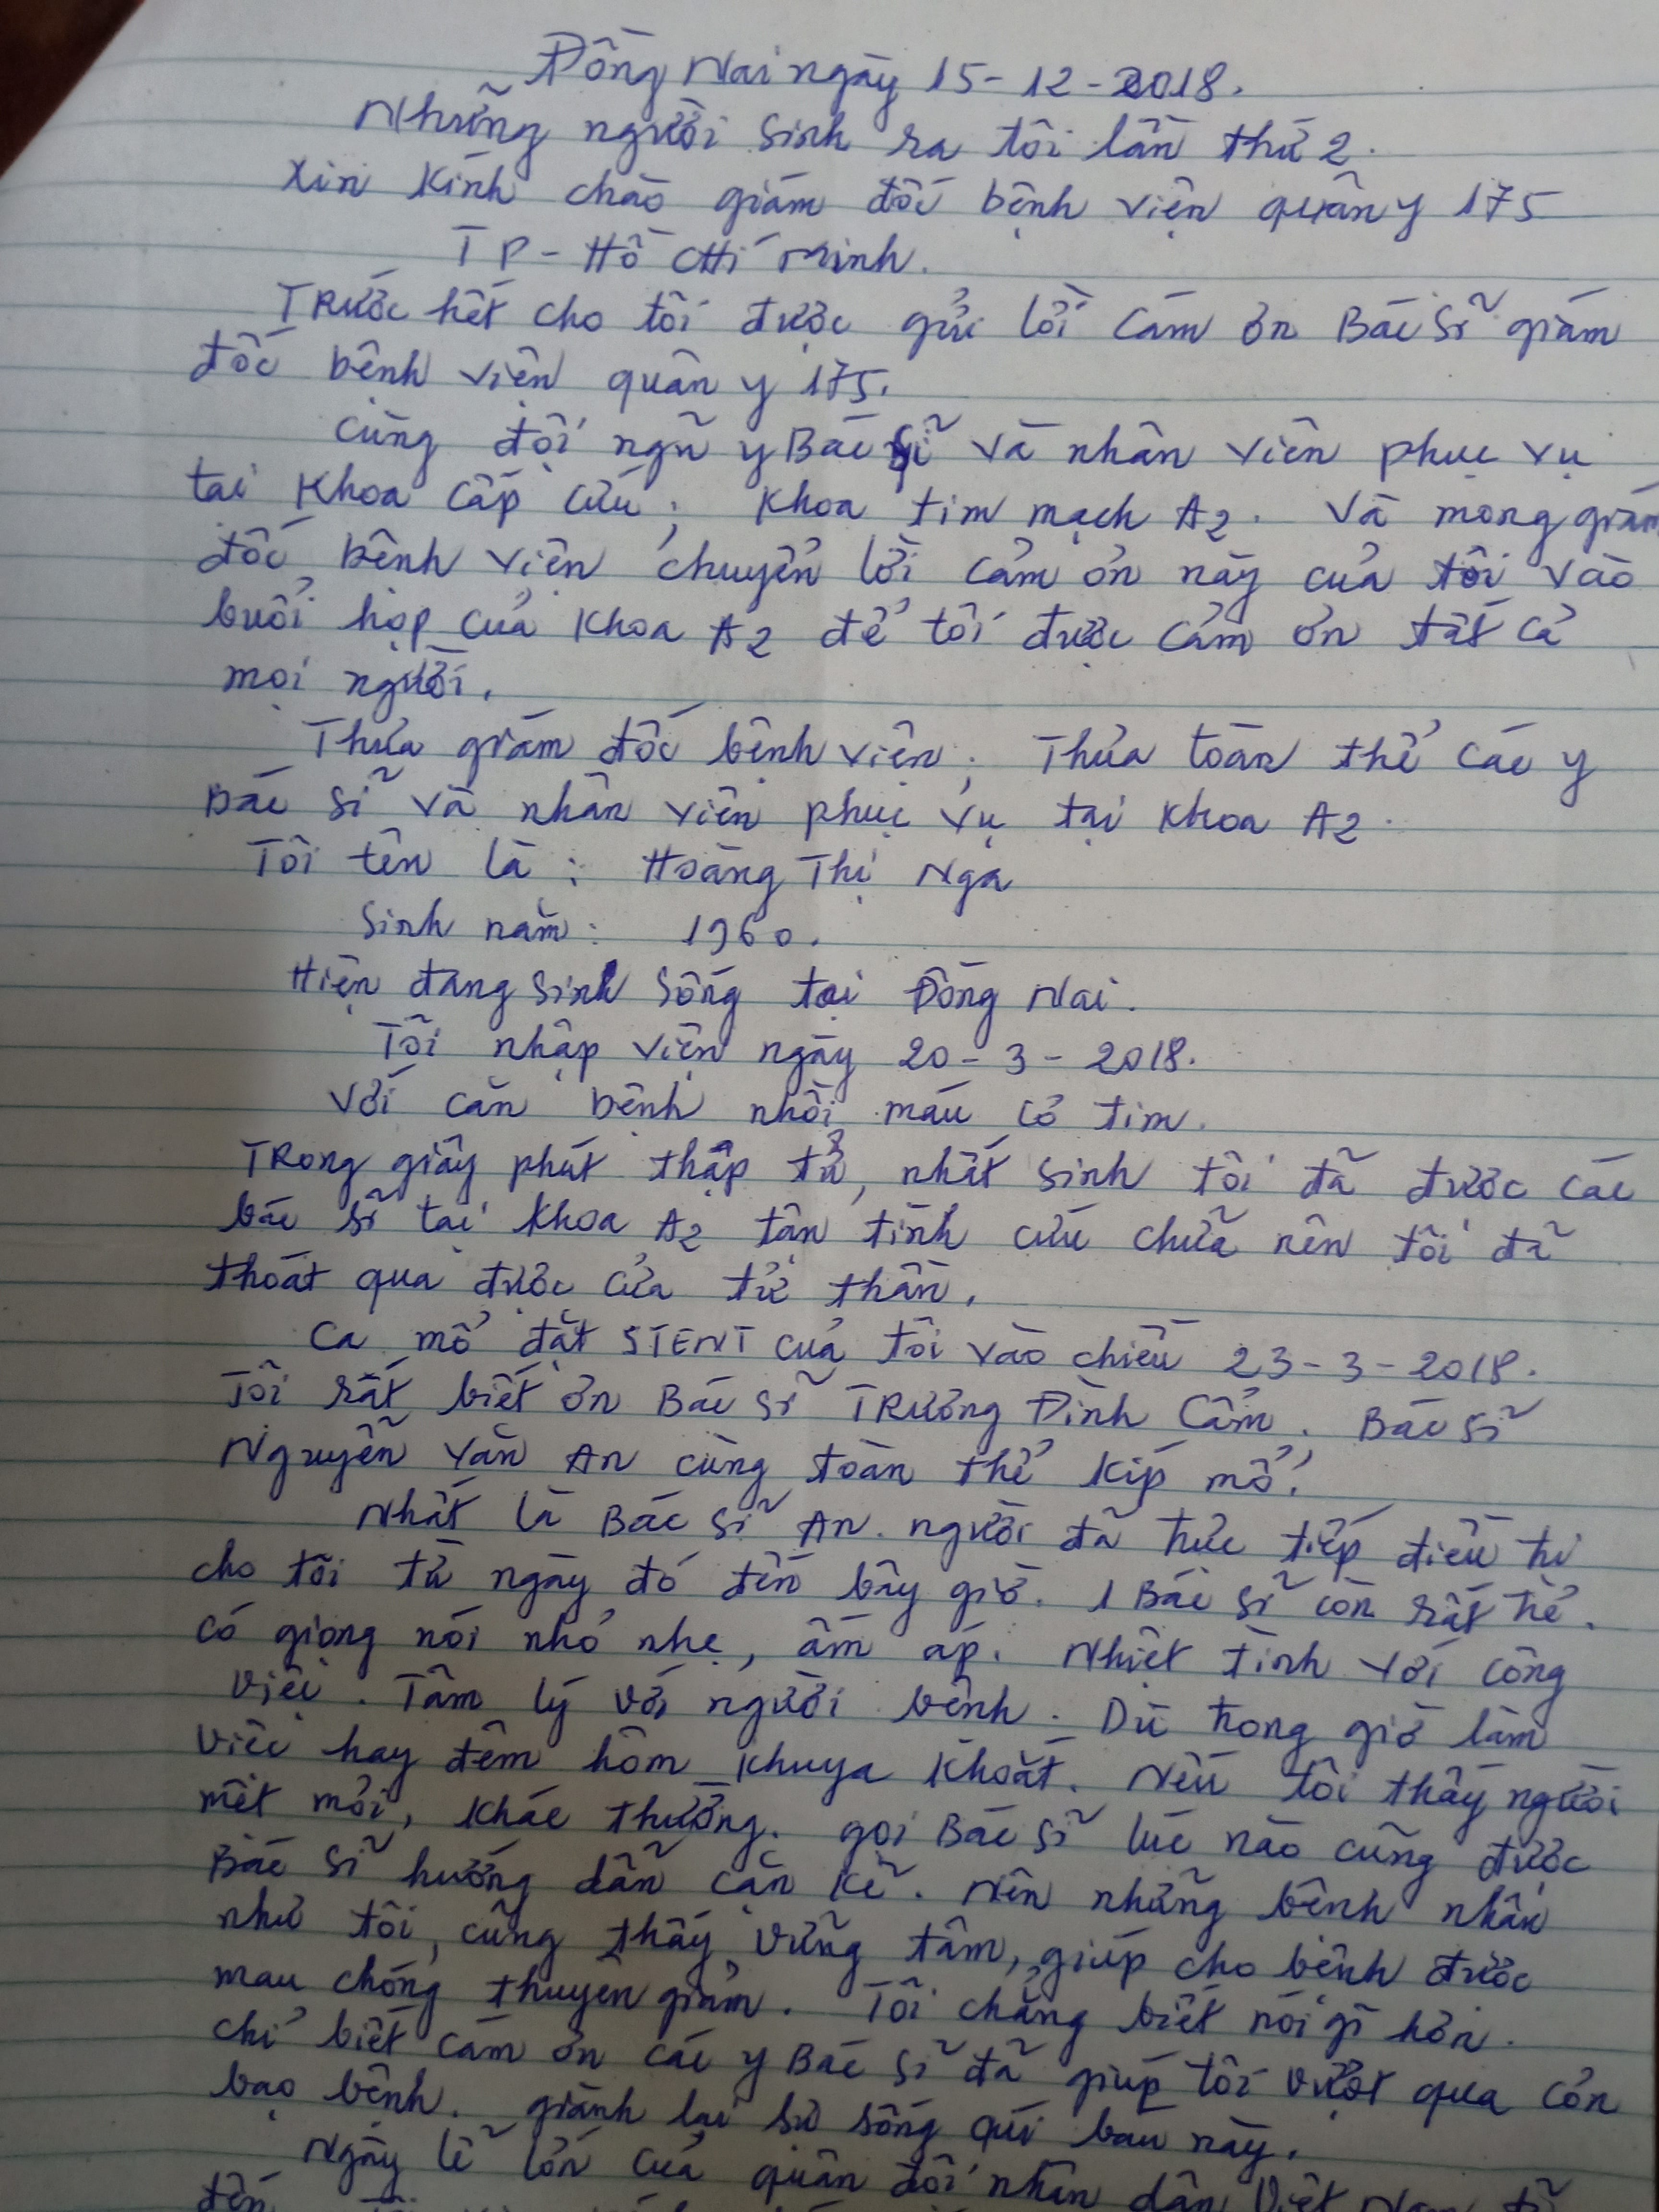 Đồng Nai ngày 15-12-2018.
Những người sinh ra tôi lần thứ 2.
Xin kính chào giám đốc bệnh viện quân y 175
TP - Hồ CHí Minh.
TRước hết cho tôi được gửi lời cám ơn Bác sĩ giám
đốc bệnh viện quân y 175.
cùng đội ngũ y Bác sĩ và nhân viên phục vụ
tại Khoa cấp cứu; Khoa tim mạch A2. Và mong giám
đốc bệnh viện chuyển lời cảm ơn này của tôi vào
buổi họp của Khoa A2 để tôi được cảm ơn tất cả
mọi người.
Thưa giám đốc bệnh viện; Thưa toàn thể các y
Bác sĩ và nhân viên phục vụ tại Khoa A2.
Tôi tên là: Hoàng Thị Nga
Sinh năm: 1960.
Hiện đang sinh sống tại Đồng Nai.
Tôi nhập viện ngày 20-3-2018.
Với căn bệnh nhồi máu cơ tim.
TRong giây phút thập tử, nhất sinh tôi đã được các
bác sĩ tại Khoa A2 tận tình cứu chữa nên tôi đã
thoát qua được cửa tử thần.
Ca mổ đặt STENT của tôi vào chiều 23-3-2018.
Tôi rất biết ơn Bác sĩ TRương Đình Cẩm. Bác sĩ
Nguyễn Văn An cùng toàn thể kíp mổ!
Nhất là Bác sĩ An. người đã trức tiếp điều trị
cho tôi từ ngày đó đến bây giờ. 1 Bác sĩ còn rất trẻ.
có giọng nói nhỏ nhẹ, ấm áp. Nhiệt tình với công
việc. Tâm lý với người bệnh. Dù trong giờ làm
việc hay đêm hôm khuya khoắt. Nếu tôi thấy người
mệt mỏi, khác thường. gọi Bác sĩ lúc nào cũng được
Bác sĩ hướng dẫn cặn kẽ. Nên những bệnh nhân
như tôi, cũng thấy vững tâm, giúp cho bệnh được
mau chóng thuyên giảm. Tôi chẳng biết nói gì hơn.
chỉ biết cám ơn các y Bác sĩ đã giúp tôi vượt qua cơn
bạo bệnh. giành lại sự sống quí báu này.
Ngày lễ lớn của quân đội nhân dân Việt Nam đã
đến